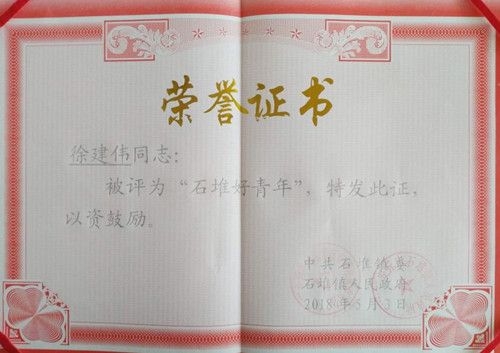 荣誉证书
徐建伟同志：
被评为“石堆好青年”，特发此证，
以资鼓励。
中共石堆镇委
石堆镇人民政府
2018年5月3日